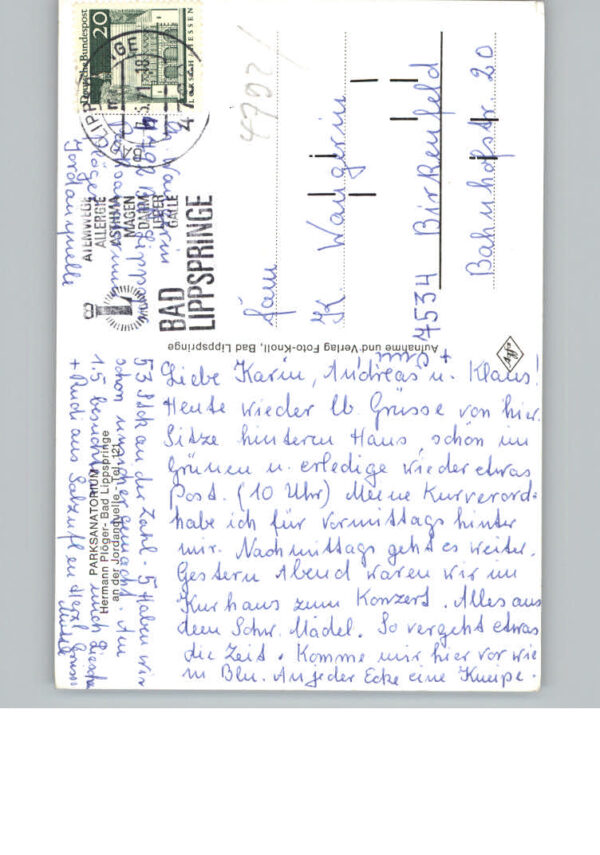 Deutsche Bundespost
20
LORSCH / HESSEN
4792
ATEMWEGE
ALLERGIE
ASTHMA
MAGEN
DARM
LEBER
GALLE
BAD
LIPPSPRINGE
Jordanquelle
Fam
K. Wangerin
7534 Birkenfeld
Bahnhofstr 20
Aufnahme und Verlag Foto-Knoll, Bad Lippspringe
PARKSANATORIUM
Hermann Plöger - Bad Lippspringe
an der Jordanquelle - Tel. 121
Liebe Karin, Andreas u. Klaus!
Heute wieder lb. Grüsse von hier.
Sitze hinterm Haus, schön im
Grünen u. erledige wieder etwas
Post. (10 Uhr) Meine Kurverord-
habe ich für vormittags hinter
mir. Nachmittags geht es weiter.
Gestern Abend waren wir im
Kurhaus zum Konzert. Alles aus
dem Schw. Mädel. So vergeht etwas
die Zeit. Komme mir hier vor wie
in Bln. An jeder Ecke eine Kneipe.
53 Stck an der Zahl. 5 Haben wir
schon unsicher gemacht. Am
1.5 besuchten mich
+ Rudi aus Salzuflen Herzl. Grüsse